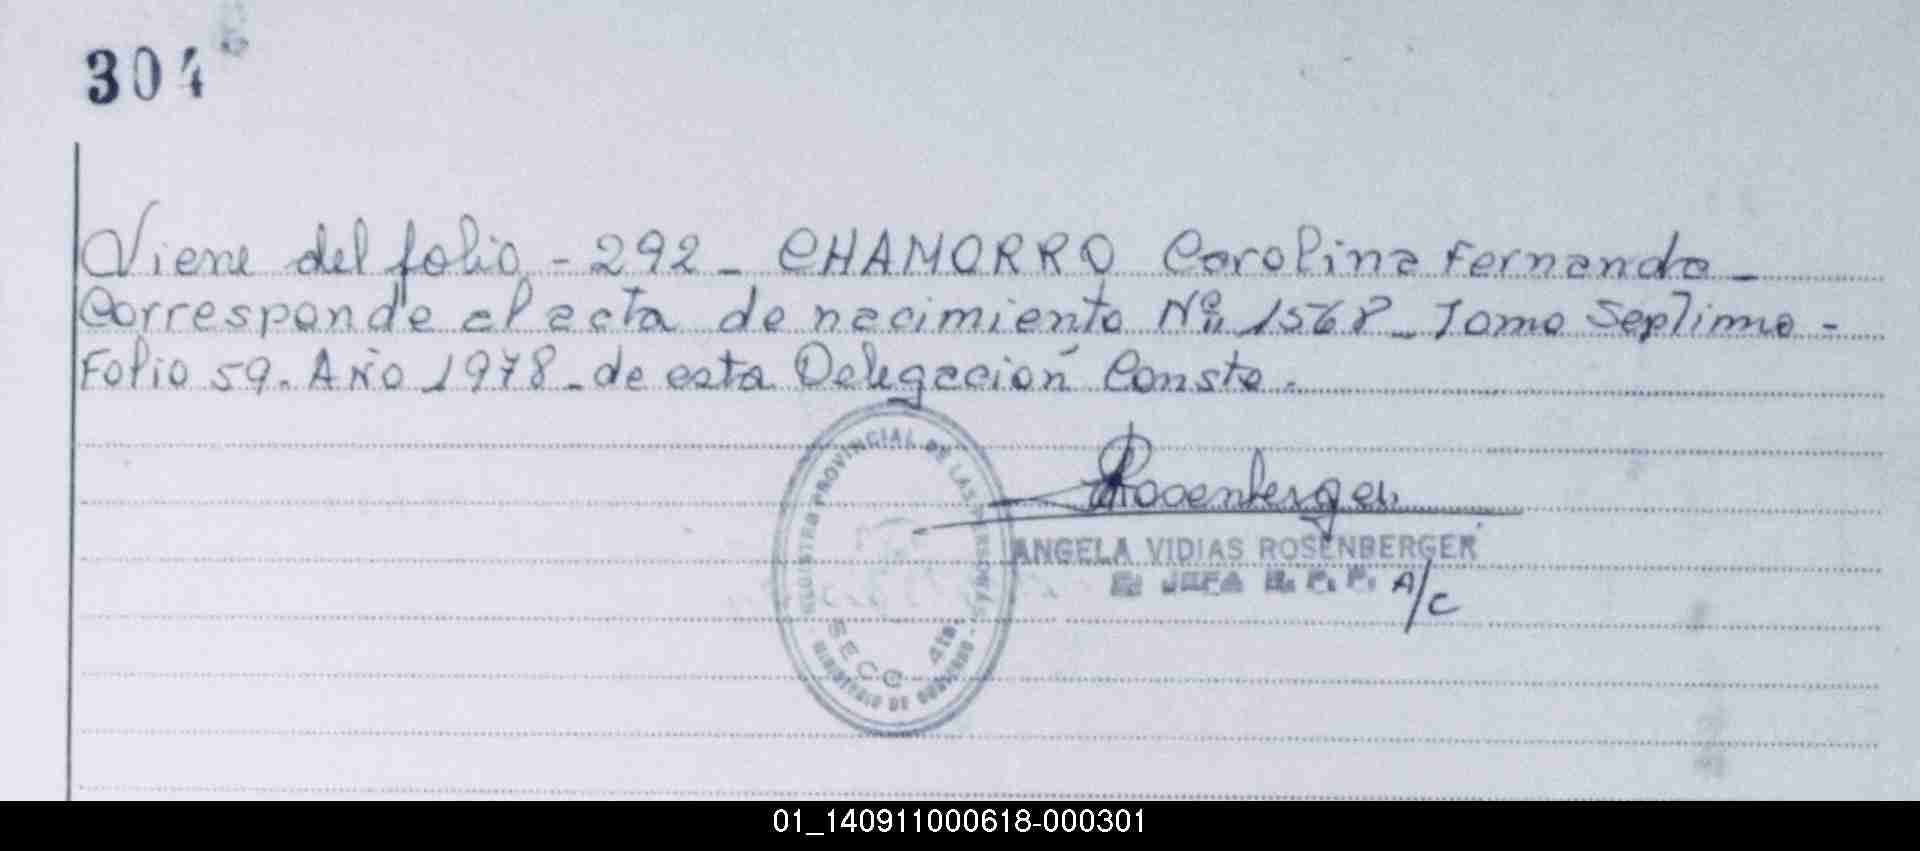 304
Viene del folio - 292 - CHAMORRO Carolina Fernanda -
Corresponde al acta de nacimiento Nº 1568 - Tomo Septimo -
Folio 59. Año 1978 - de esta Delegación Conste.
REGISTRO PROVINCIAL DE LAS PERSONAS
SECC 4ta.
MINISTERIO DE GOBIERNO
Rosenberger
ANGELA VIDIAS ROSENBERGER
JEFA R. P. P. A/C
01_140911000618-000301